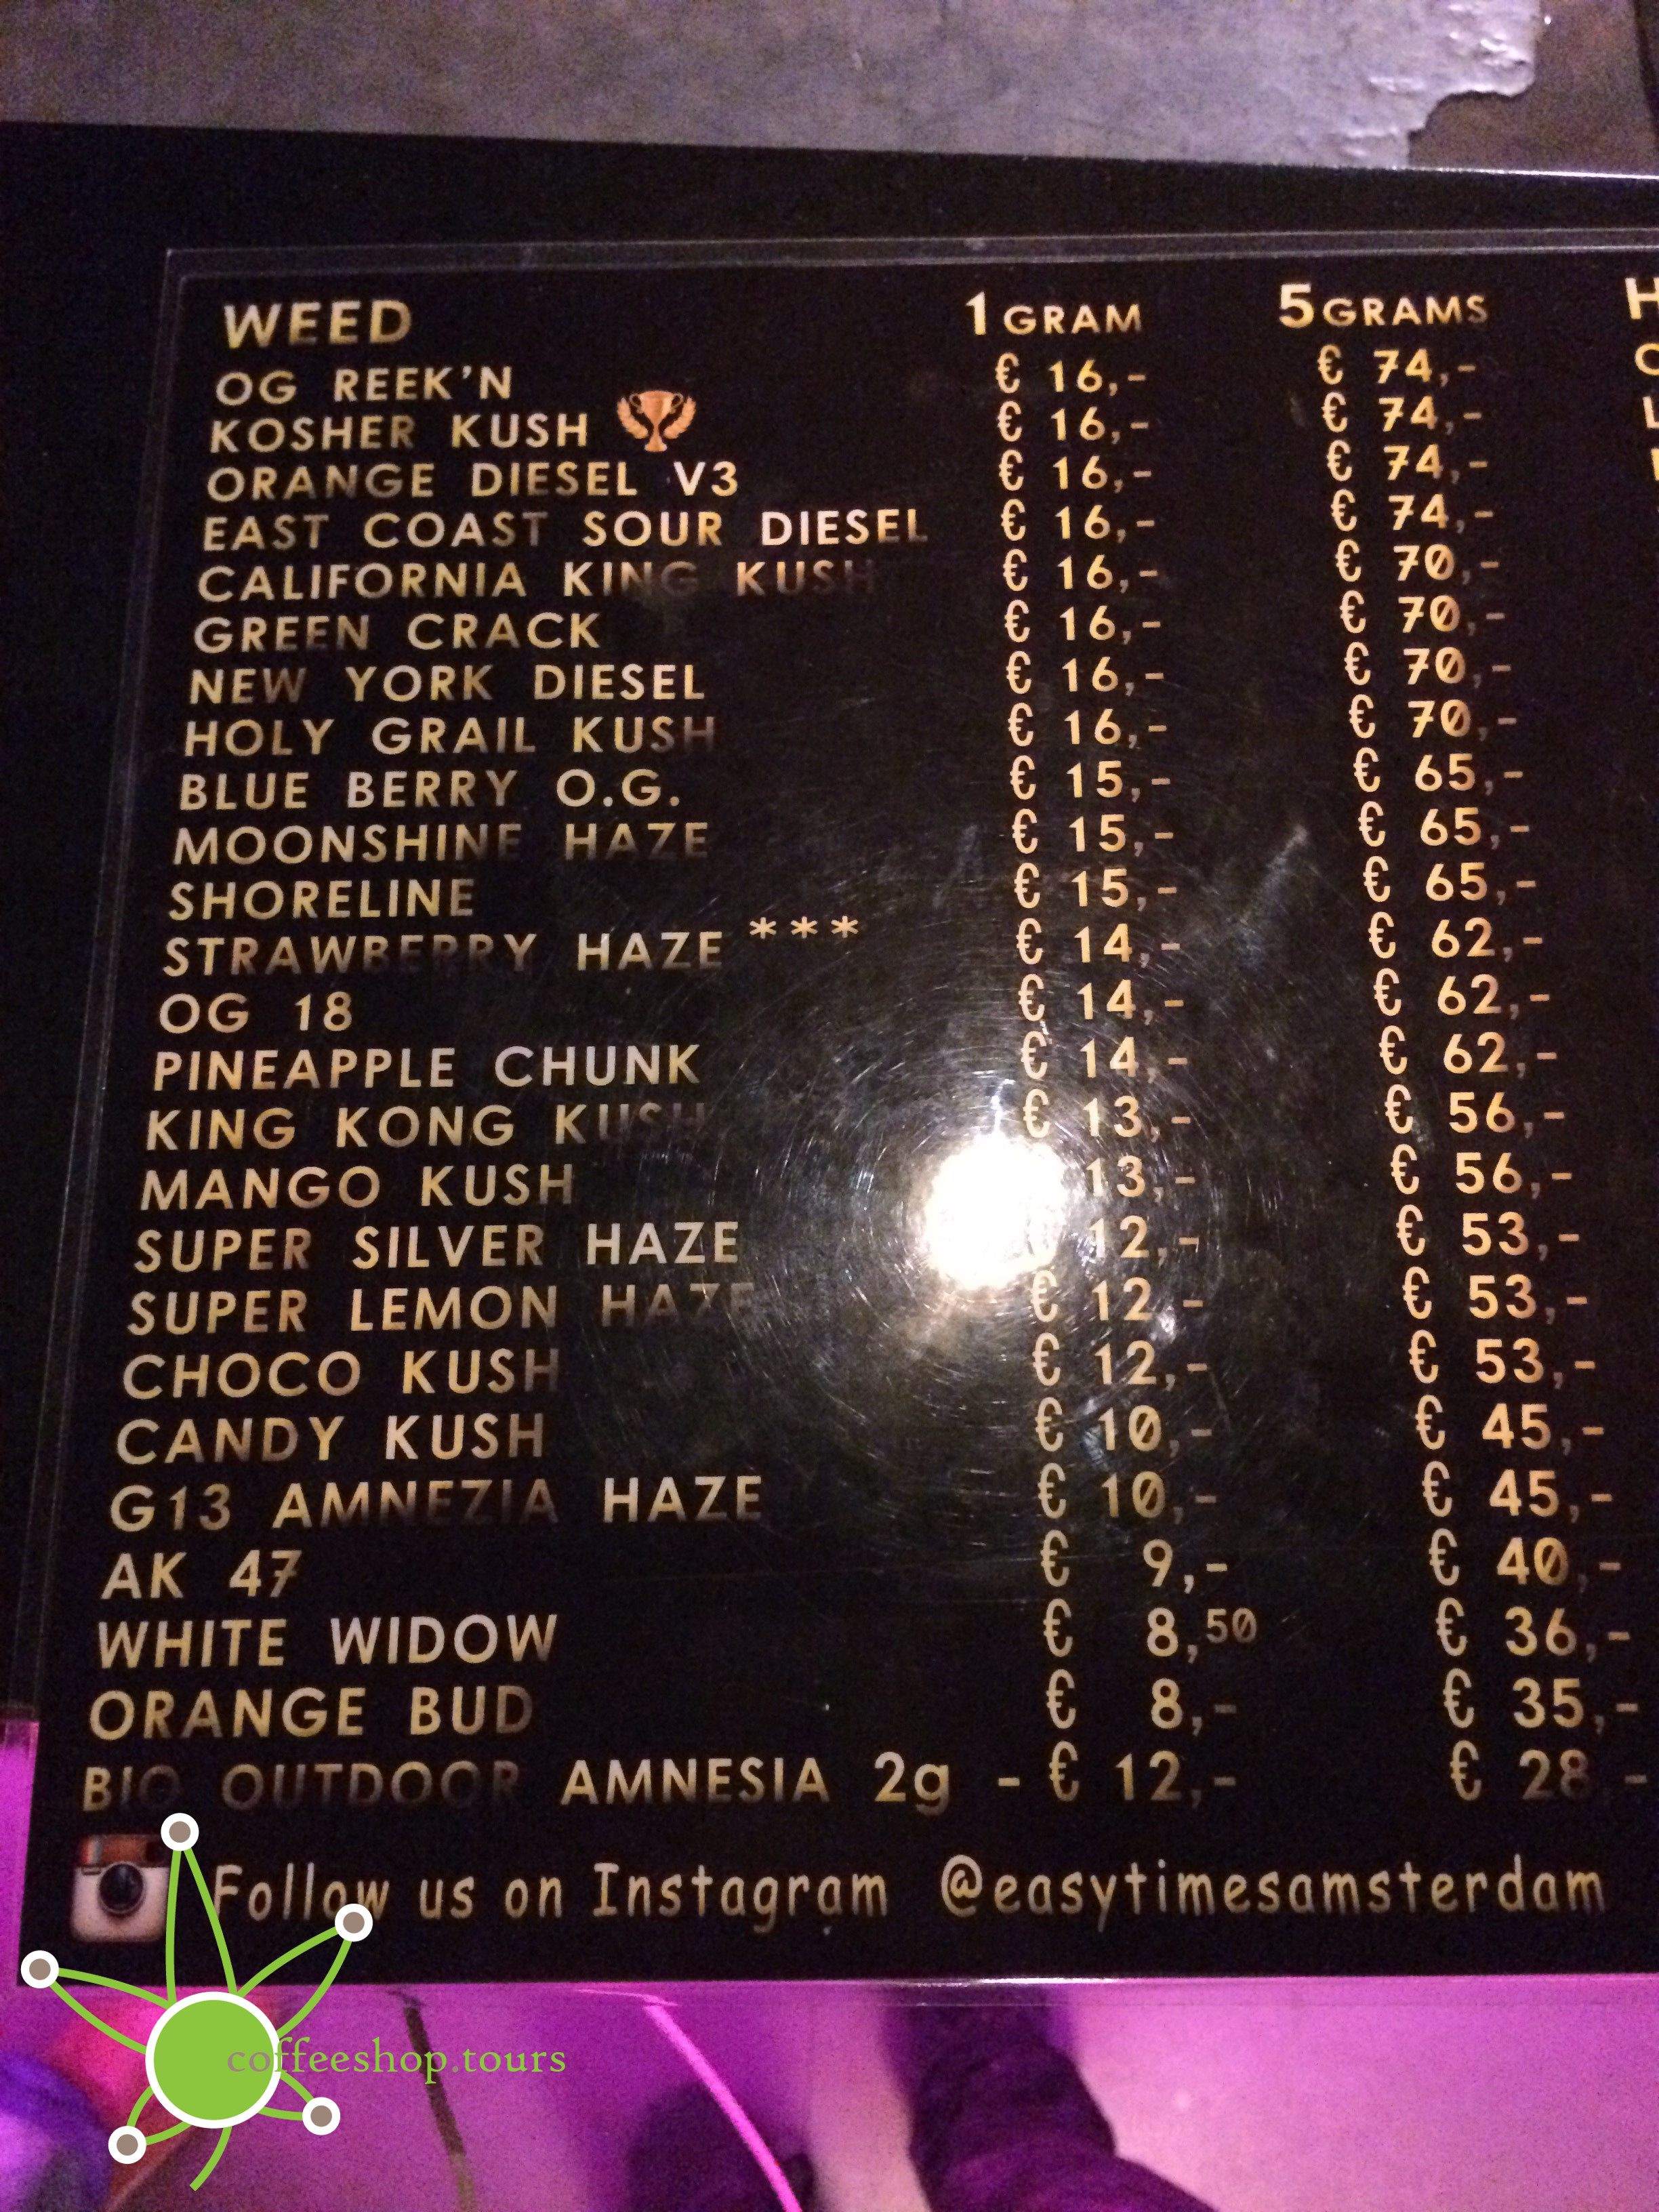 WEED 1 GRAM 5 GRAMS H
OG REEK'N € 16,- € 74,-
KOSHER KUSH € 16,- € 74,-
ORANGE DIESEL V3 € 16,- € 74,-
EAST COAST SOUR DIESEL € 16,- € 74,-
CALIFORNIA KING KUSH € 16,- € 70,-
GREEN CRACK € 16,- € 70,-
NEW YORK DIESEL € 16,- € 70,-
HOLY GRAIL KUSH € 16,- € 70,-
BLUE BERRY O.G. € 15,- € 65,-
MOONSHINE HAZE € 15,- € 65,-
SHORELINE € 15,- € 65,-
STRAWBERRY HAZE *** € 14,- € 62,-
OG 18 € 14,- € 62,-
PINEAPPLE CHUNK € 14,- € 62,-
KING KONG KUSH € 13,- € 56,-
MANGO KUSH 13,- € 56,-
SUPER SILVER HAZE 12,- € 53,-
SUPER LEMON HAZE € 12,- € 53,-
CHOCO KUSH € 12,- € 53,-
CANDY KUSH € 10,- € 45,-
G13 AMNEZIA HAZE € 10,- € 45,-
AK 47 € 9,- € 40,-
WHITE WIDOW € 8,50 € 36,-
ORANGE BUD € 8,- € 35,-
BIG OUTDOOR AMNESIA 2g - € 12,- € 28,-
Follow us on Instagram @easytimesamsterdam
coffeeshop.tours